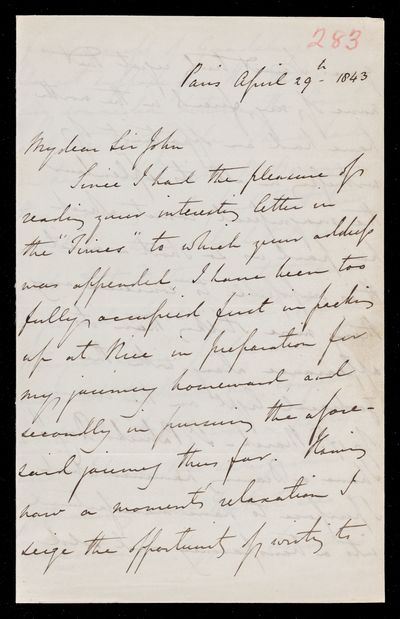 283
Paris April 29th 1843
My dear Sir John
Since I had the pleasure of
reading your interesting letter in
the "Times" to which your address
was appended, I have been too
fully occupied first in packing
up at Nice in preparation for
my journey homeward and
secondly in pursuing the afore-
said journey thus far. Having
now a moment's relaxation I
seize the opportunity of writing to